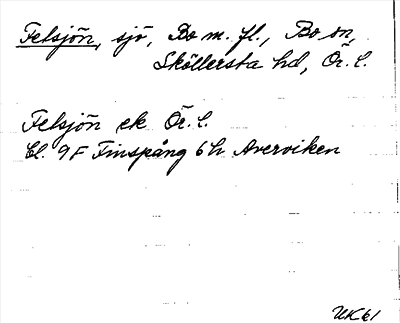 Felsjön, sjö, Bo m. fl., Bo sn,
Sköllersta hd, Ör. l.
Felsjön ek Ör. l.
Bl. 9F Finspång 6h Averviken
UK61